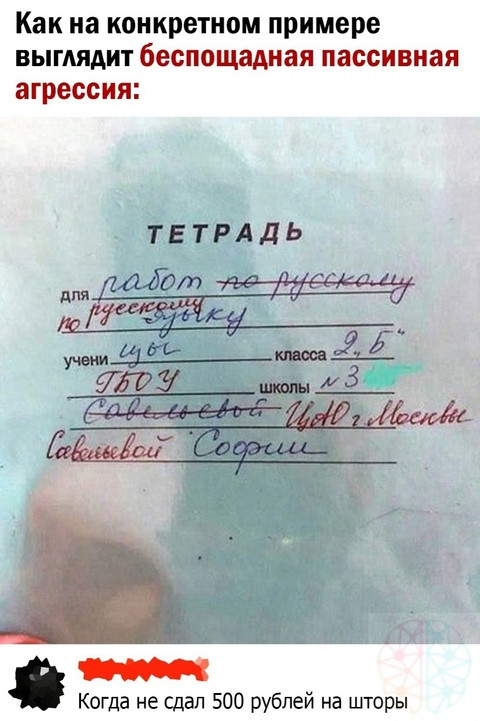 Как на конкретном примере
выглядит беспощадная пассивная
агрессия:
ТЕТРАДЬ
для работ по русскому
по русскому языку
учени цы класса 2 „Б“
ГБОУ школы №3
Савельевой ЦАО г Москвы
Савельевой Софии
Когда не сдал 500 рублей на шторы